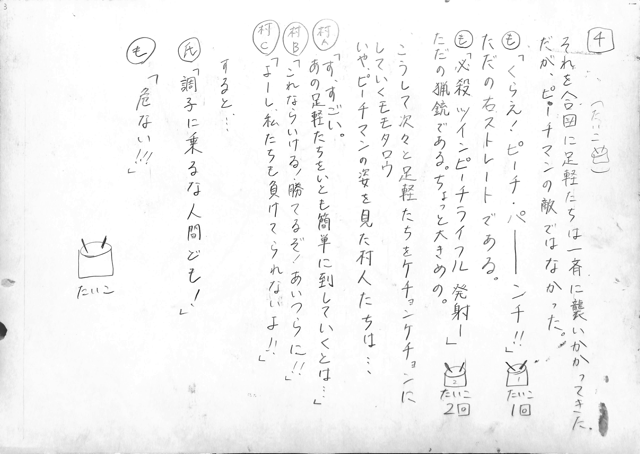 4
(たいこ)
それを合図に足軽たちは一斉に襲いかかってきた。
だが、ピーチマンの敵ではなかった。
も「くらえ!ピーチ・パーーンチ!!」
1
たいこ
1回
ただの右ストレートである。
も「必殺ツインピーチライフル発射ー」
2
たいこ
2回
ただの猟銃である。ちょっと大きめの。
こうして次々と足軽たちをケチョンケチョンに
していくモモタロウ
いや、ピーチマンの姿を見た村人たちは…
村A「す、すごい。
あの足軽たちをいとも簡単に倒していくとは…」
村B「これならいける!勝てるぞ!あいつらに!!」
村C「よーし、私たちも負けてられないよ!!」
すると…
氏「調子に乗るな人間ども!」
も「危ない!!」
たいこ